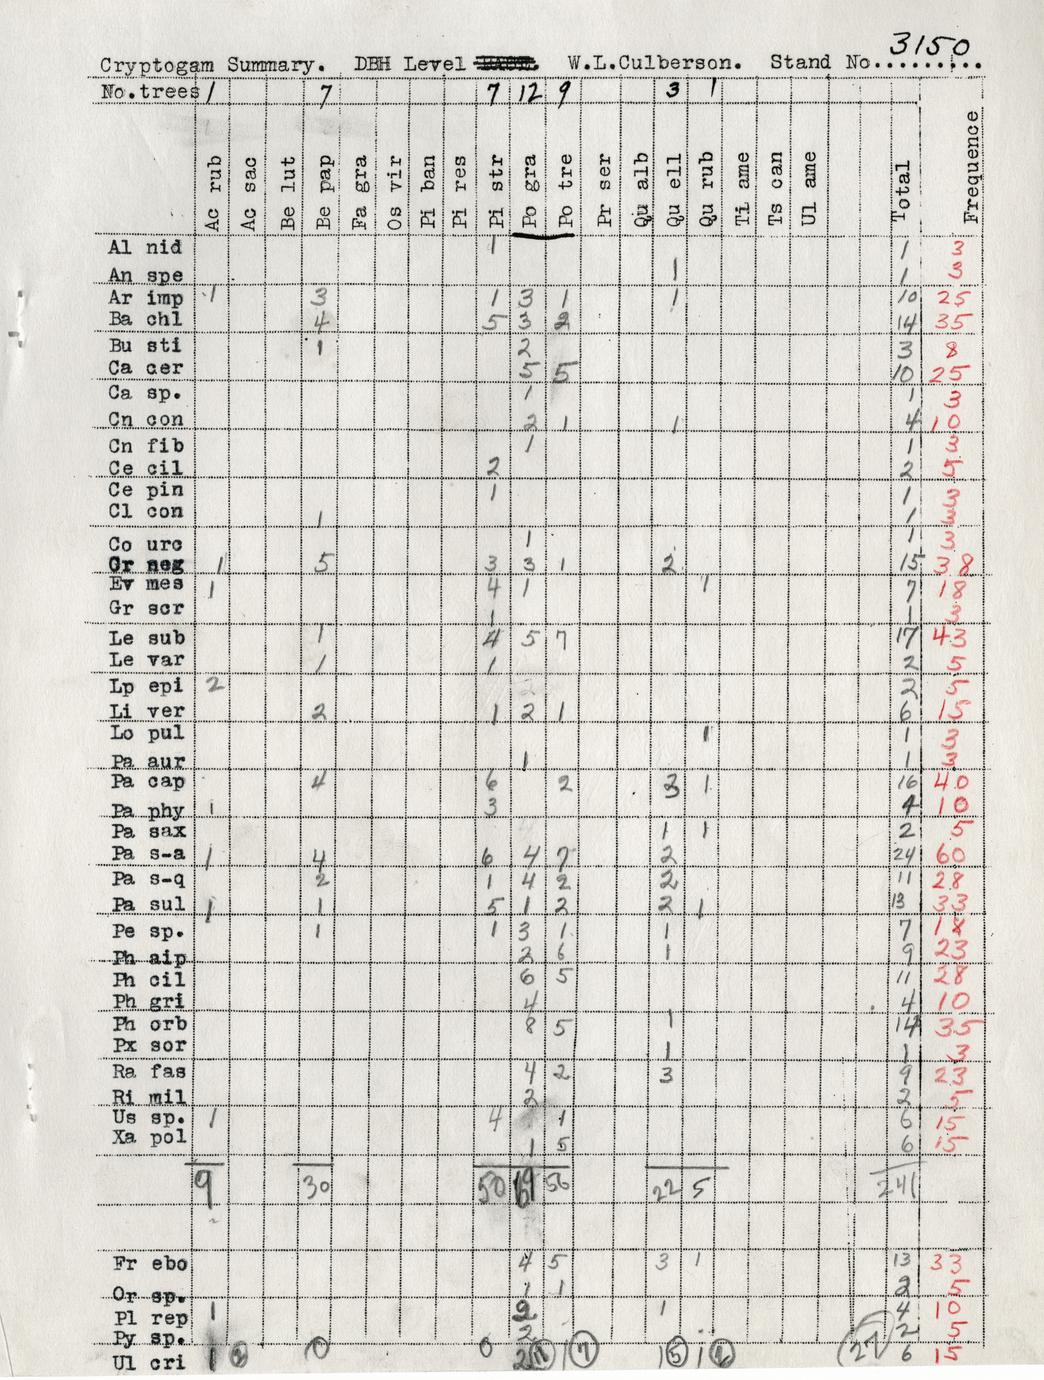 3150
Cryptogam Summary. DBH Level W.L.Culberson. Stand No..........
No.trees 1 7 7 12 9 3 1
Ac rub Ac sac Be lut Be pap Fa gra Os vir Pi ban Pi res Pi str Po gra Po tre Pr ser Qu alb Qu ell Qu rub Ti ame Ts can Ul ame Total Frequence
Al nid 1 1 3
An spe 1 1 3
Ar imp 1 3 1 3 1 1 10 25
Ba chl 4 5 3 2 14 35
Bu sti 1 2 3 8
Ca cer 5 5 10 25
Ca sp. 1 1 3
Cn con 2 1 1 4 10
Cn fib 1 1 3
Ce cil 2 2 5
Ce pin 1 1 3
Cl con 1 1 3
Co urc 1 1 3
Gr neg 1 5 3 3 1 2 15 38
Ev mes 1 4 1 1 7 18
Gr scr 1 1 3
Le sub 1 4 5 7 17 43
Le var 1 1 2 5
Lp epi 2 2 5
Li ver 2 1 2 1 6 15
Lo pul 1 1 3
Pa aur 1 1 3
Pa cap 4 6 2 3 1 16 40
Pa phy 1 3 4 10
Pa sax 1 1 2 5
Pa s-a 1 4 6 4 7 2 24 60
Pa s-q 2 1 4 2 2 11 28
Pa sul 1 1 5 1 2 2 1 13 33
Pe sp. 1 1 3 1 1 7 18
Ph aip 2 6 1 9 23
Ph cil 6 5 11 28
Ph gri 4 4 10
Ph orb 8 5 1 14 35
Px sor 1 1 3
Ra fas 4 2 3 9 23
Ri mil 2 2 5
Us sp. 1 4 1 6 15
Xa pol 1 5 6 15
9 30 50 69 56 22 5 241
Fr ebo 4 5 3 1 13 33
Or sp. 1 1 2 5
Pl rep 1 2 1 4 10
Py sp. 2 2 5
Ul cri 1 2 0 0 2 11 1 7 1 5 1 2 27 6 15